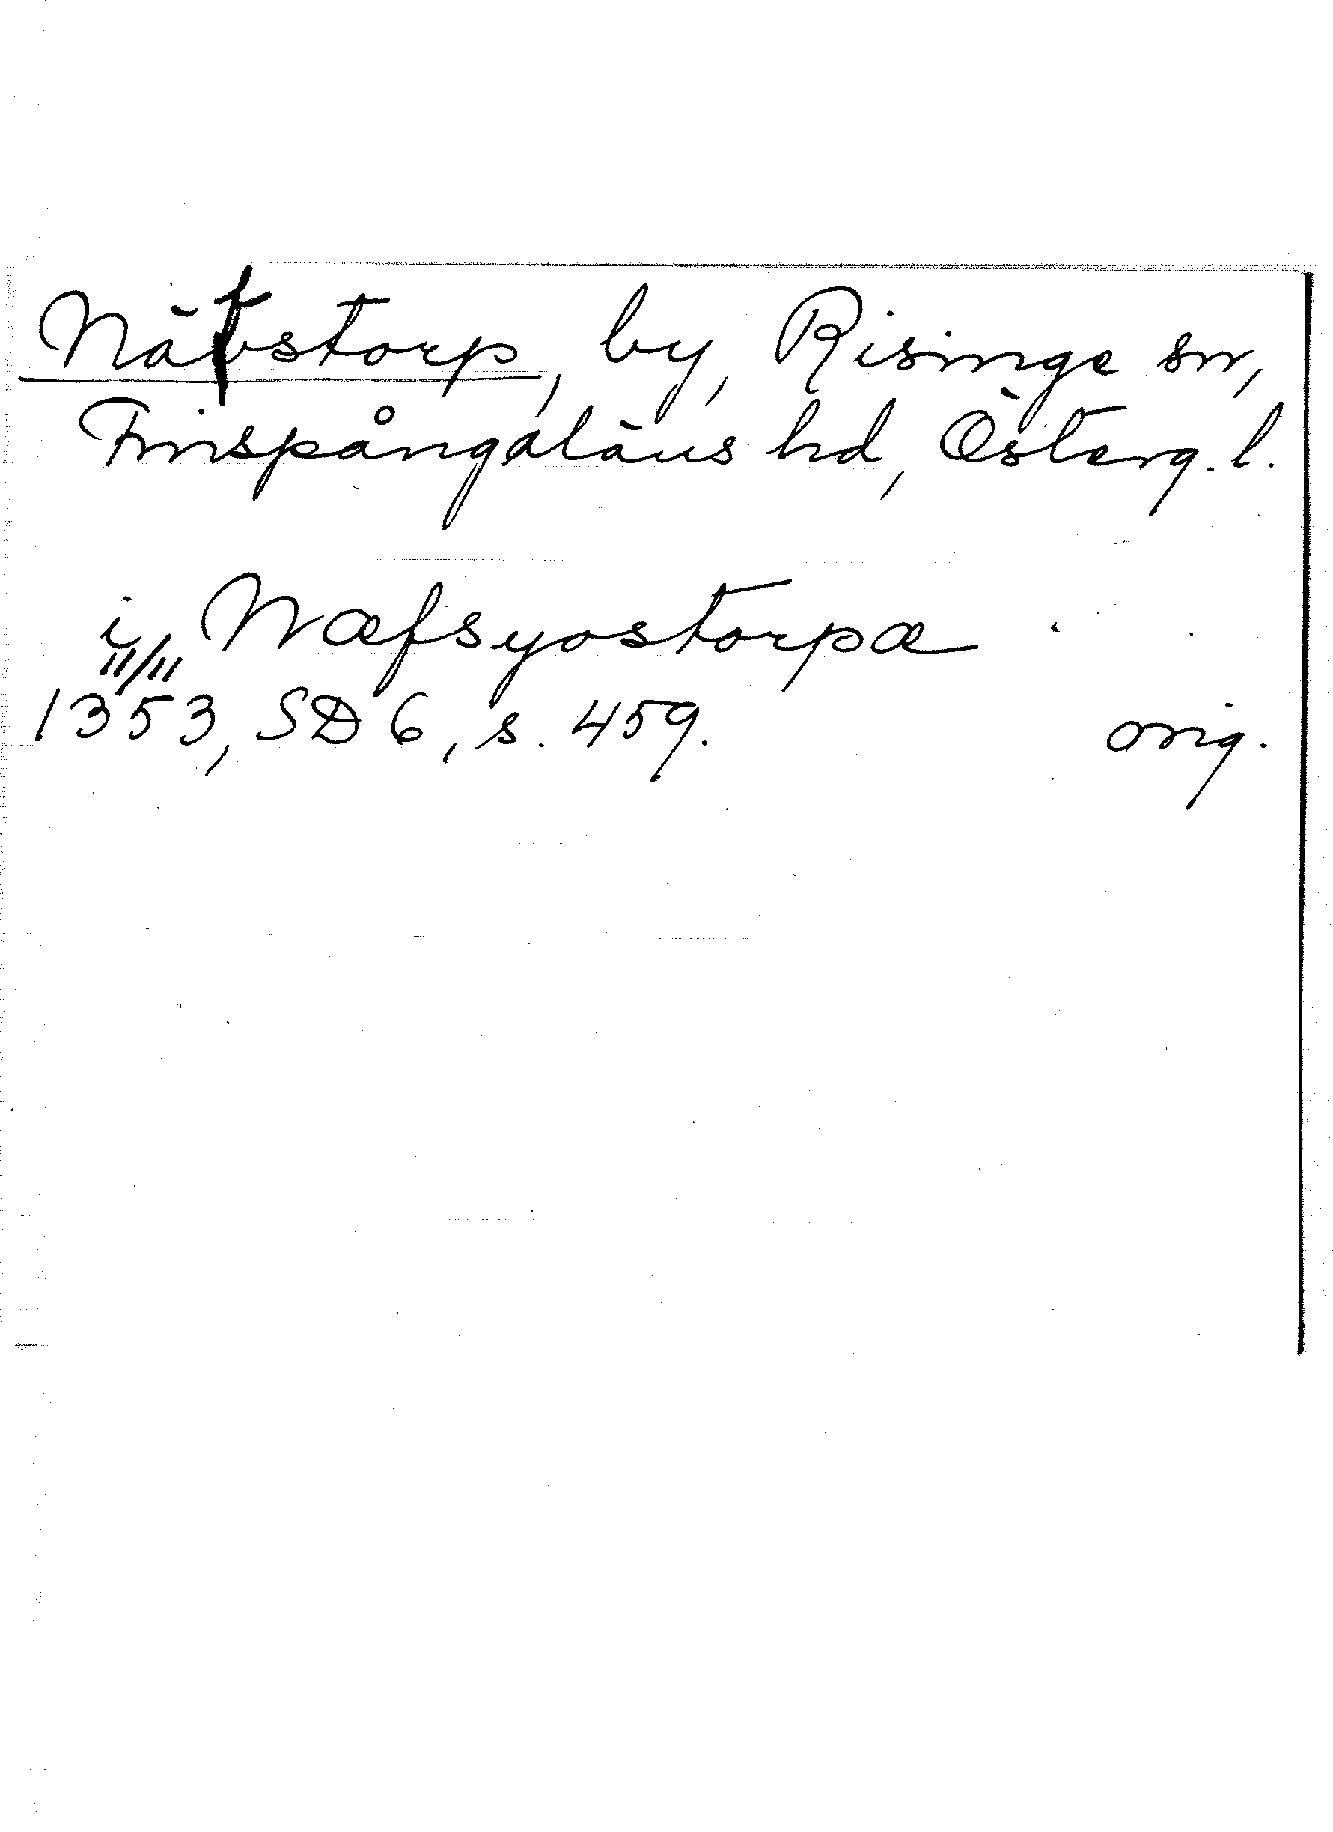 Näfstorp, by, Risinge sn,
Finspångaläns hd, Österg. l.
i Næfsyostorpæ
11/11
1353, SD 6, s. 459. orig.